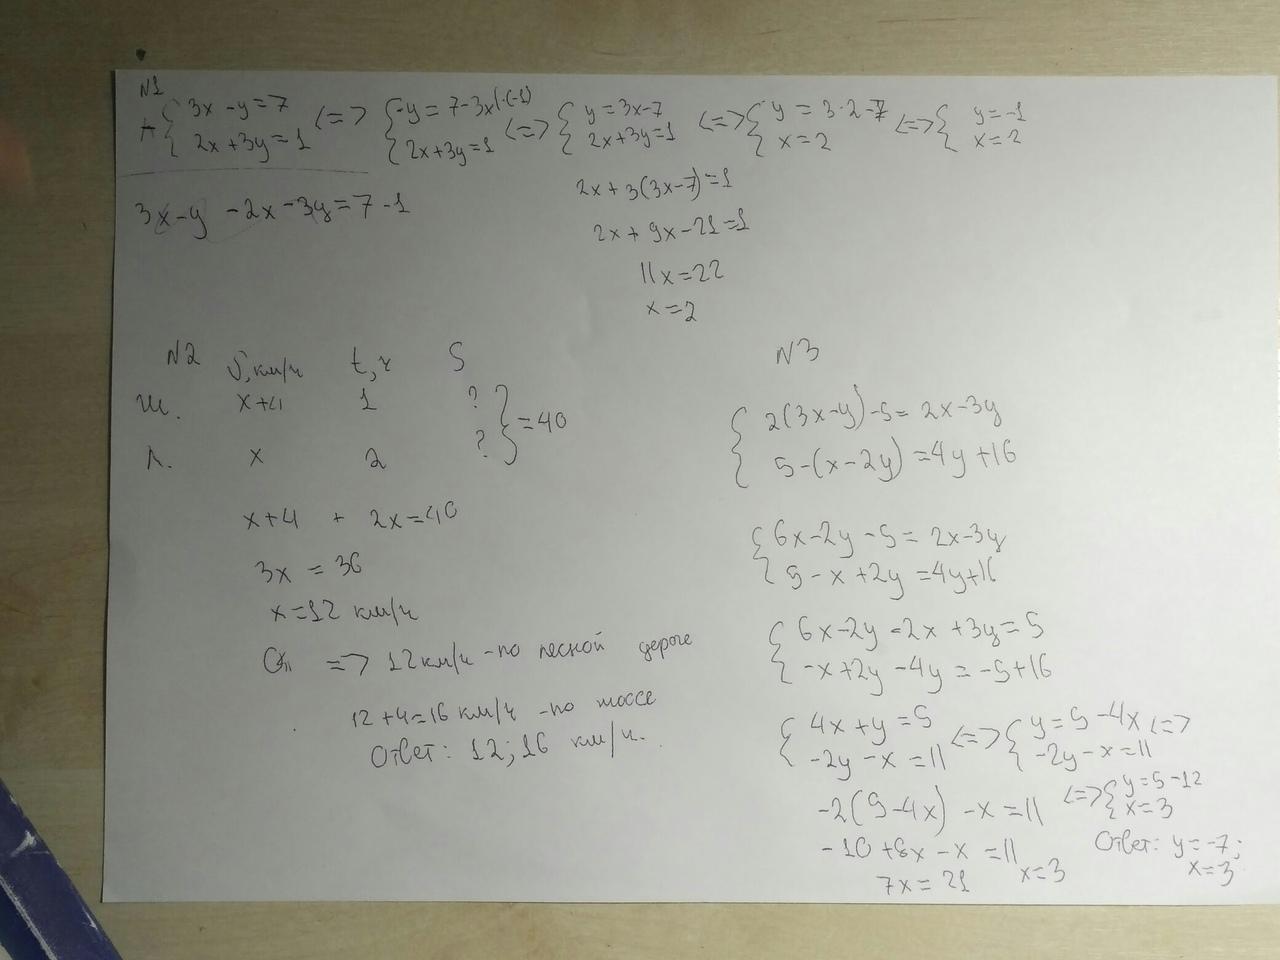 N1
{ 3x - y = 7
2x + 3y = 1 <=> { -y = 7 - 3x |·(-1)
2x + 3y = 1 <=> { y = 3x - 7
2x + 3y = 1 <=> { y = 3·2 - 7
x = 2 <=> { y = -1
x = 2
3x - y - 2x - 3y = 7 - 1
2x + 3(3x - 7) = 1
2x + 9x - 21 = 1
11x = 22
x = 2
N2 V, км/ч t, ч S
ш. x+4 1 ?
} = 40
л. x 2 ?
x+4 + 2x = 40
3x = 36
x = 12 км/ч
=> 12 км/ч - по лесной дороге
12 + 4 = 16 км/ч - по шоссе
Ответ: 12; 16 км/ч.
N3
{ 2(3x - y) - 5 = 2x - 3y
5 - (x - 2y) = 4y + 16
{ 6x - 2y - 5 = 2x - 3y
5 - x + 2y = 4y + 16
{ 6x - 2y - 2x + 3y = 5
-x + 2y - 4y = -5 + 16
{ 4x + y = 5
-2y - x = 11 <=> { y = 5 - 4x
-2y - x = 11 <=>
<=> { y = 5 - 12
x = 3
-2(5 - 4x) - x = 11
-10 + 8x - x = 11
7x = 21 x = 3
Ответ: y = -7;
x = 3